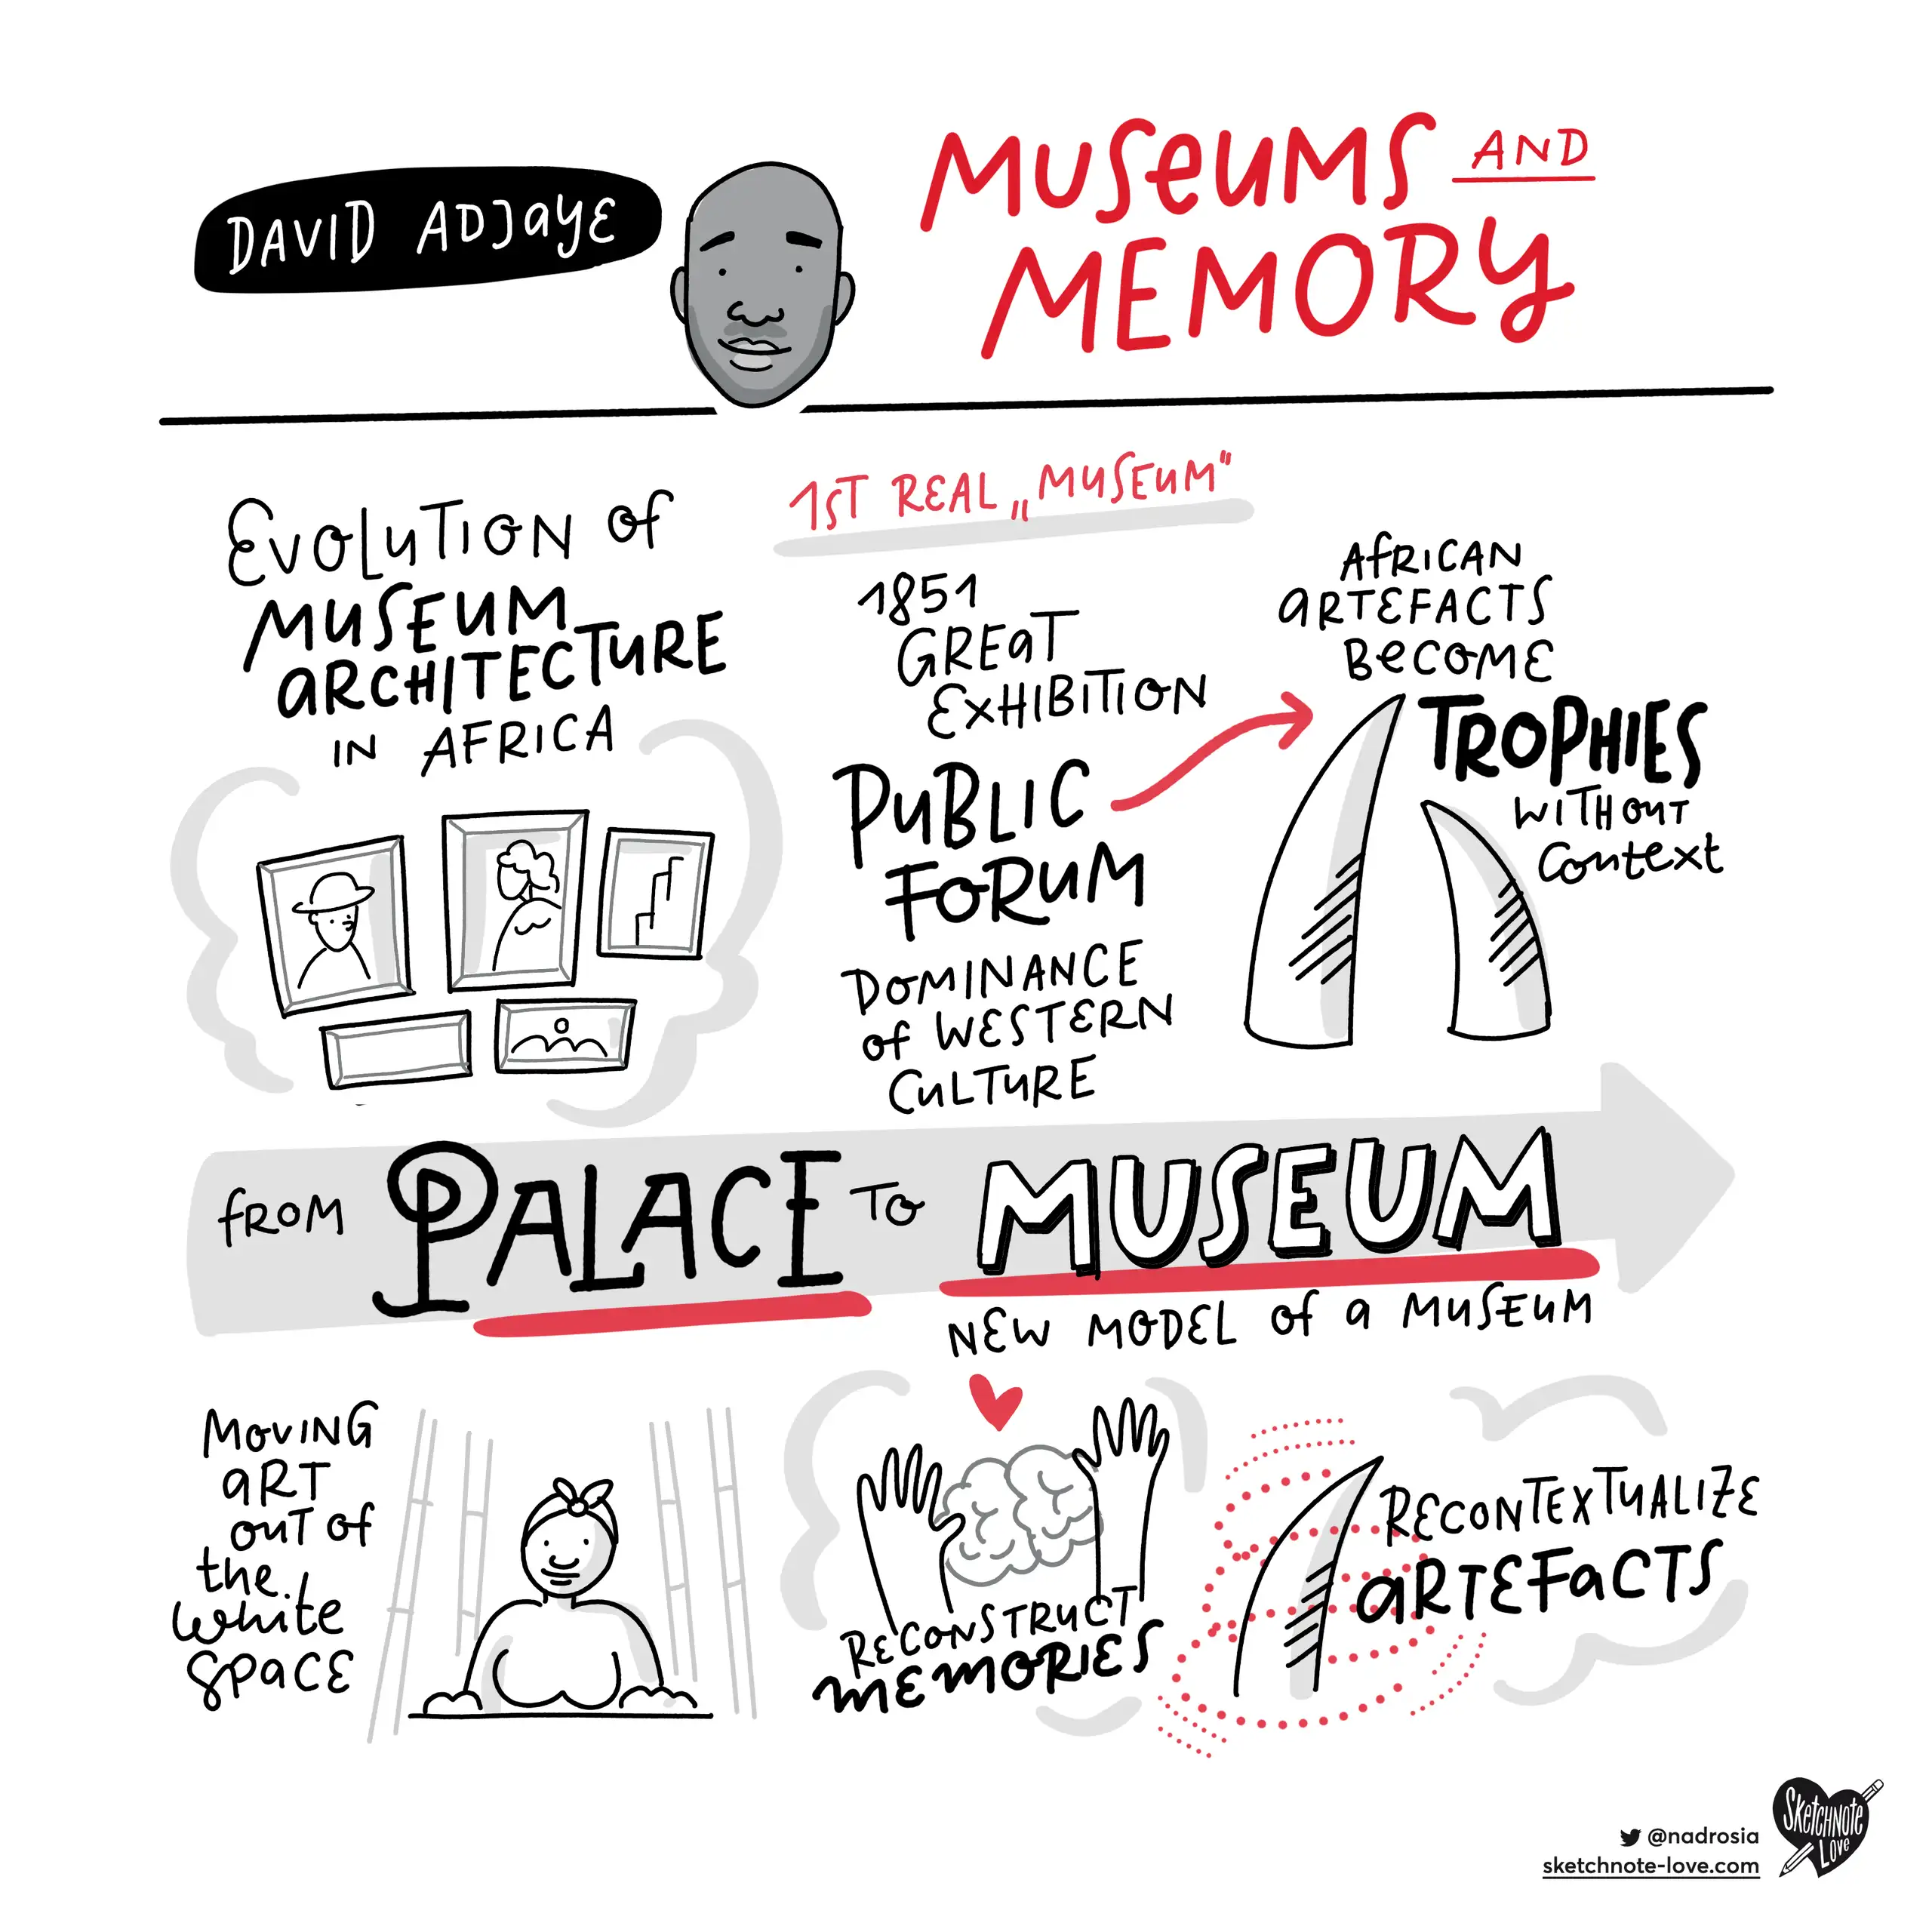 DAVID ADJAYE
MUSEUMS AND
MEMORY
EVOLUTION of
MUSEUM
ARCHITECTURE
IN AFRICA
1ST REAL „MUSEUM“
1851
GREAT
EXHIBITION
PUBLIC
FORUM
DOMINANCE
of WESTERN
CULTURE
AFRICAN
ARTEFACTS
BECOME
TROPHIES
WITHOUT
Context
FROM PALACE TO MUSEUM
NEW MODEL of a MUSEUM
MOVING
ART
OUT of
the
white
SPACE
RECONSTRUCT
MEMORIES
RECONTEXTUALIZE
ARTEFACTS
@nadrosia
sketchnote-love.com
SKETCHNOTE
LOVE